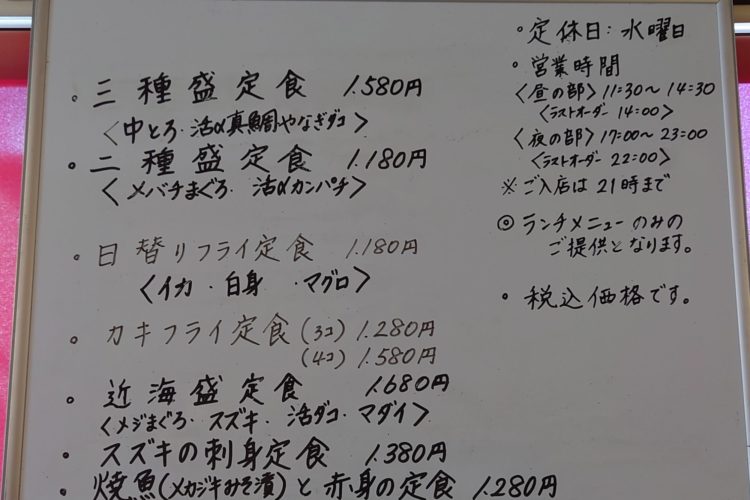 ・三種盛定食 1.580円
〈中とろ・活〆真鯛やなぎダコ〉
・二種盛定食 1.180円
〈メバチまぐろ・活〆カンパチ〉
・日替りフライ定食 1.180円
〈イカ・白身・マグロ〉
・カキフライ定食(3コ) 1.280円
(4コ) 1.580円
・近海盛定食 1.680円
〈メジまぐろ・スズキ・活ダコ・マダイ〉
・スズキの刺身定食 1.380円
・焼魚(メカジキみそ漬)と赤身の定食 1.280円
・定休日:水曜日
・営業時間
〈昼の部〉11:30〜14:30
〈ラストオーダー 14:00〉
〈夜の部〉17:00〜23:00
〈ラストオーダー 22:00〉
※ご入店は21時まで
◎ランチメニューのみの
ご提供となります。
・税込価格です。